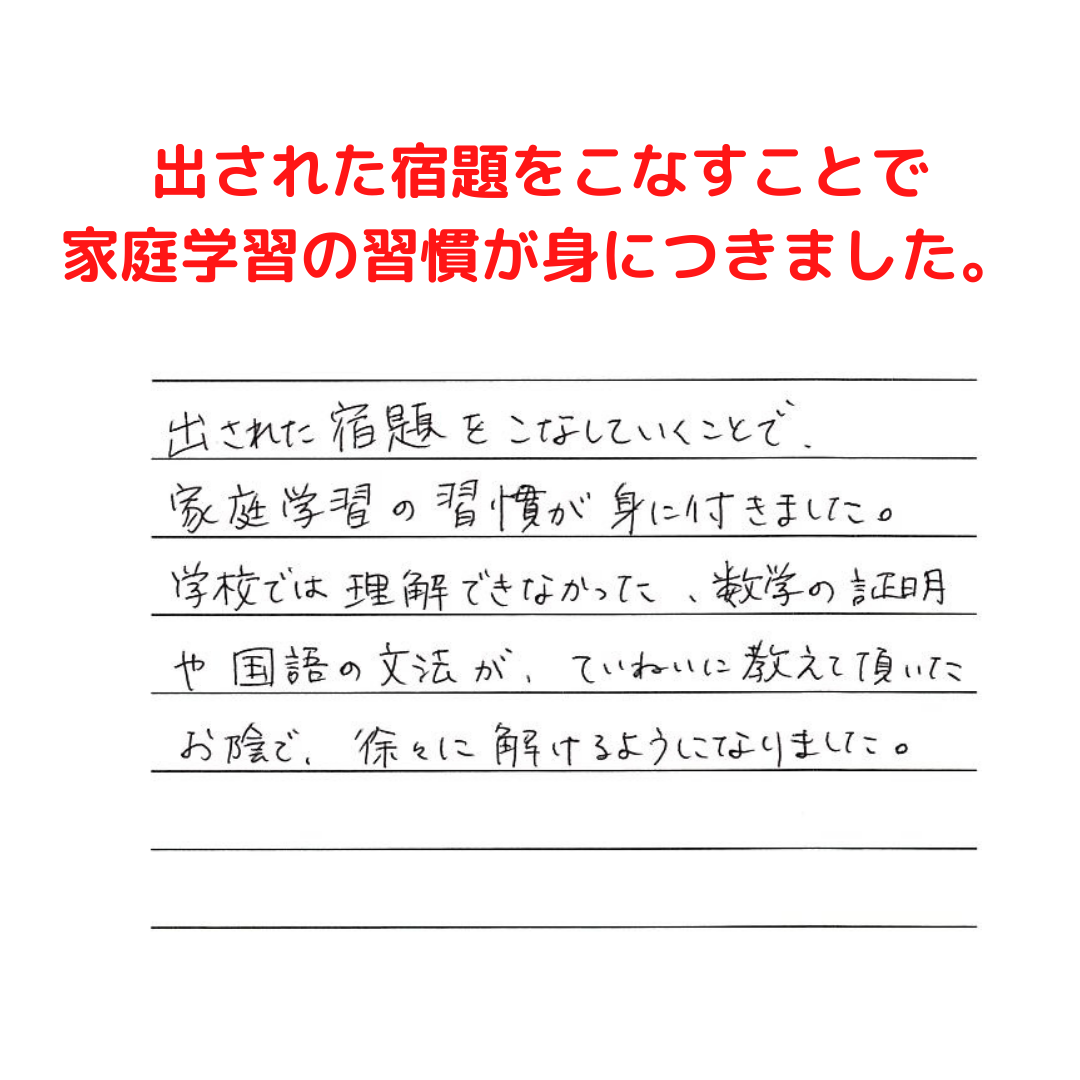 出された宿題をこなすことで
家庭学習の習慣が身につきました。
出された宿題をこなしていくことで、
家庭学習の習慣が身に付きました。
学校では理解できなかった、数学の証明
や国語の文法が、ていねいに教えて頂いた
お陰で、徐々に解けるようになりました。